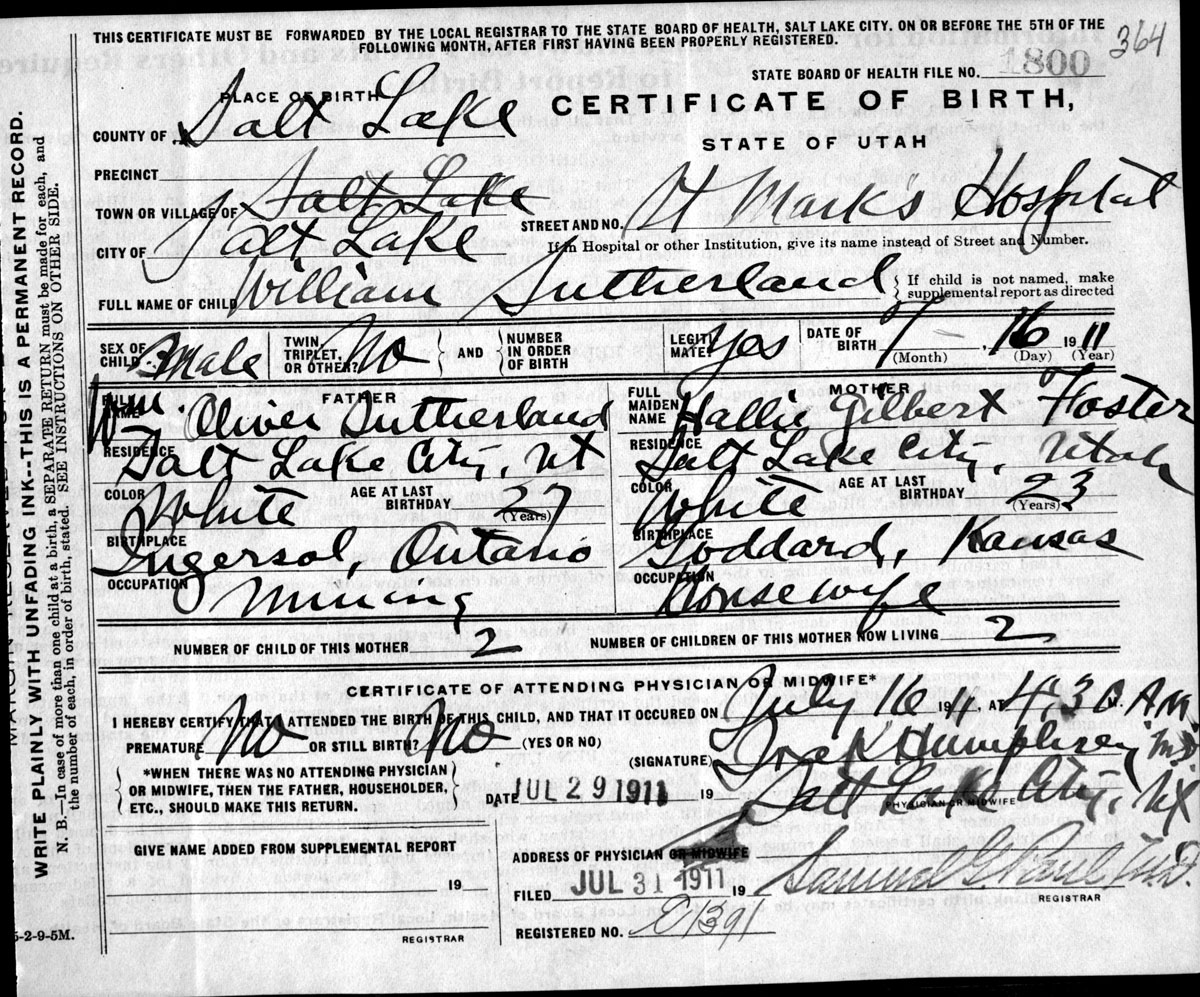 THIS CERTIFICATE MUST BE FORWARDED BY THE LOCAL REGISTRAR TO THE STATE BOARD OF HEALTH, SALT LAKE CITY. ON OR BEFORE THE 5TH OF THE
FOLLOWING MONTH, AFTER FIRST HAVING BEEN PROPERLY REGISTERED.
364
STATE BOARD OF HEALTH FILE NO. 1800
PLACE OF BIRTH
CERTIFICATE OF BIRTH,
COUNTY OF Salt Lake
STATE OF UTAH
PRECINCT
TOWN OR VILLAGE OF Salt Lake
STREET AND NO. St Marks Hospital
CITY OF Salt Lake
If in Hospital or other Institution, give its name instead of Street and Number.
FULL NAME OF CHILD William Sutherland
If child is not named, make
supplemental report as directed
SEX OF CHILD Male TWIN, TRIPLET, OR OTHER? No AND NUMBER IN ORDER OF BIRTH LEGITIMATE? Yes DATE OF BIRTH 7 - 16 1911
(Month) (Day) (Year)
FATHER
FULL NAME Wm. Oliver Sutherland
RESIDENCE Salt Lake City, Ut
COLOR White AGE AT LAST BIRTHDAY 27 (Years)
BIRTHPLACE Ingersol, Ontario
OCCUPATION Mining
MOTHER
FULL MAIDEN NAME Hallie Gilbert Foster
RESIDENCE Salt Lake City, Utah
COLOR White AGE AT LAST BIRTHDAY 23 (Years)
BIRTHPLACE Goddard, Kansas
OCCUPATION Housewife
NUMBER OF CHILD OF THIS MOTHER 2 NUMBER OF CHILDREN OF THIS MOTHER NOW LIVING 2
CERTIFICATE OF ATTENDING PHYSICIAN OR MIDWIFE*
I HEREBY CERTIFY THAT I ATTENDED THE BIRTH OF THIS CHILD, AND THAT IT OCCURED ON July 16 1911 AT 4:30 A.M.
PREMATURE No OR STILL BIRTH? No (YES OR NO)
(SIGNATURE) Humphrey MD
*WHEN THERE WAS NO ATTENDING PHYSICIAN
OR MIDWIFE, THEN THE FATHER, HOUSEHOLDER,
ETC., SHOULD MAKE THIS RETURN.
DATE JUL 29 1911 19
Salt Lake City, Ut
PHYSICIAN OR MIDWIFE
GIVE NAME ADDED FROM SUPPLEMENTAL REPORT
19
REGISTRAR
ADDRESS OF PHYSICIAN OR MIDWIFE
FILED JUL 31 1911 19 Samuel G. Paul M.D.
REGISTRAR
REGISTERED NO. 1391
5-2-9-5M.
WRITE PLAINLY WITH UNFADING INK--THIS IS A PERMANENT RECORD.
N. B.—In case of more than one child at a birth, a SEPARATE RETURN must be made for each, and
the number of each, in order of birth, stated. SEE INSTRUCTIONS ON OTHER SIDE.